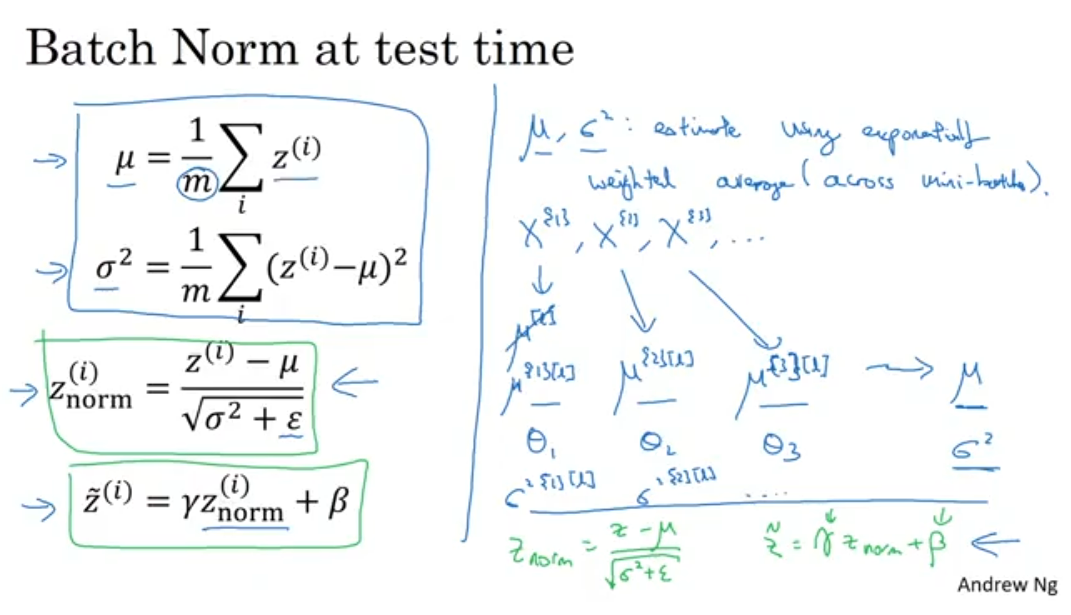 Batch Norm at test time
μ = 1/m ∑_i z^(i)
σ² = 1/m ∑_i (z^(i)−μ)²
z_norm^(i) = (z^(i) − μ) / √(σ² + ε)
z̃^(i) = γz_norm^(i) + β
μ, σ² : estimate using exponentially
weighted average (across mini-batches).
X^{1}, X^{2}, X^{3}, ...
↓
μ^[l]
μ^{1}[l] μ^{2}[l] μ^{3}[l] → μ
θ₁ θ₂ θ₃ σ²
σ²^{1}[l] σ²^{2}[l] ....
z_norm = (z − μ) / √(σ²+ε) z̃ = γ z_norm + β ←
Andrew Ng